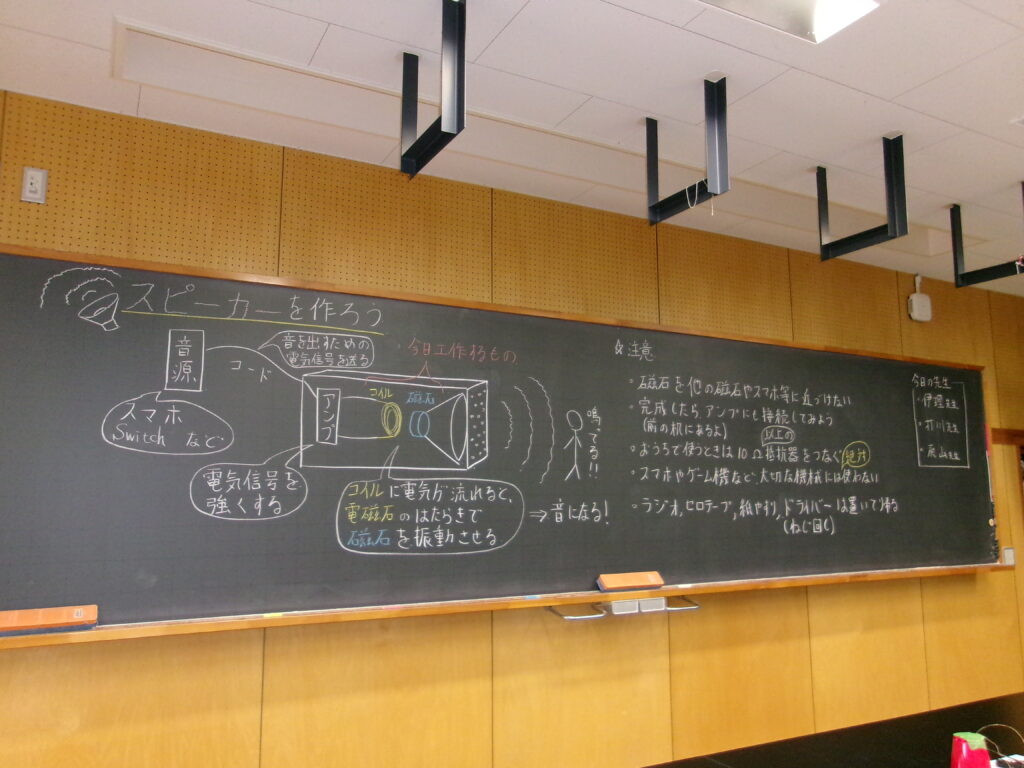 スピーカーを作ろう
音源
コード
音を出すための
電気信号を送る
スマホ
Switch など
今日工作するもの
アンプ
コイル
磁石
電気信号を
強くする
コイルに電気が流れると、
電磁石のはたらきで
磁石を振動させる
⇒ 音になる!
鳴ってる!!
☆注意
・磁石を他の磁石やスマホ等に近づけない
・完成したら、アンプにも接続してみよう
(前の机にあるよ)
・おうちで使うときは10Ω以上の抵抗器をつなぐ 絶対
・スマホやゲーム機など、大切な機械には使わない
・ラジオ,セロテープ,紙やすり,ドライバーは置いて帰る
(ねじ回し)
今日の先生
・伊理先生
・芥川先生